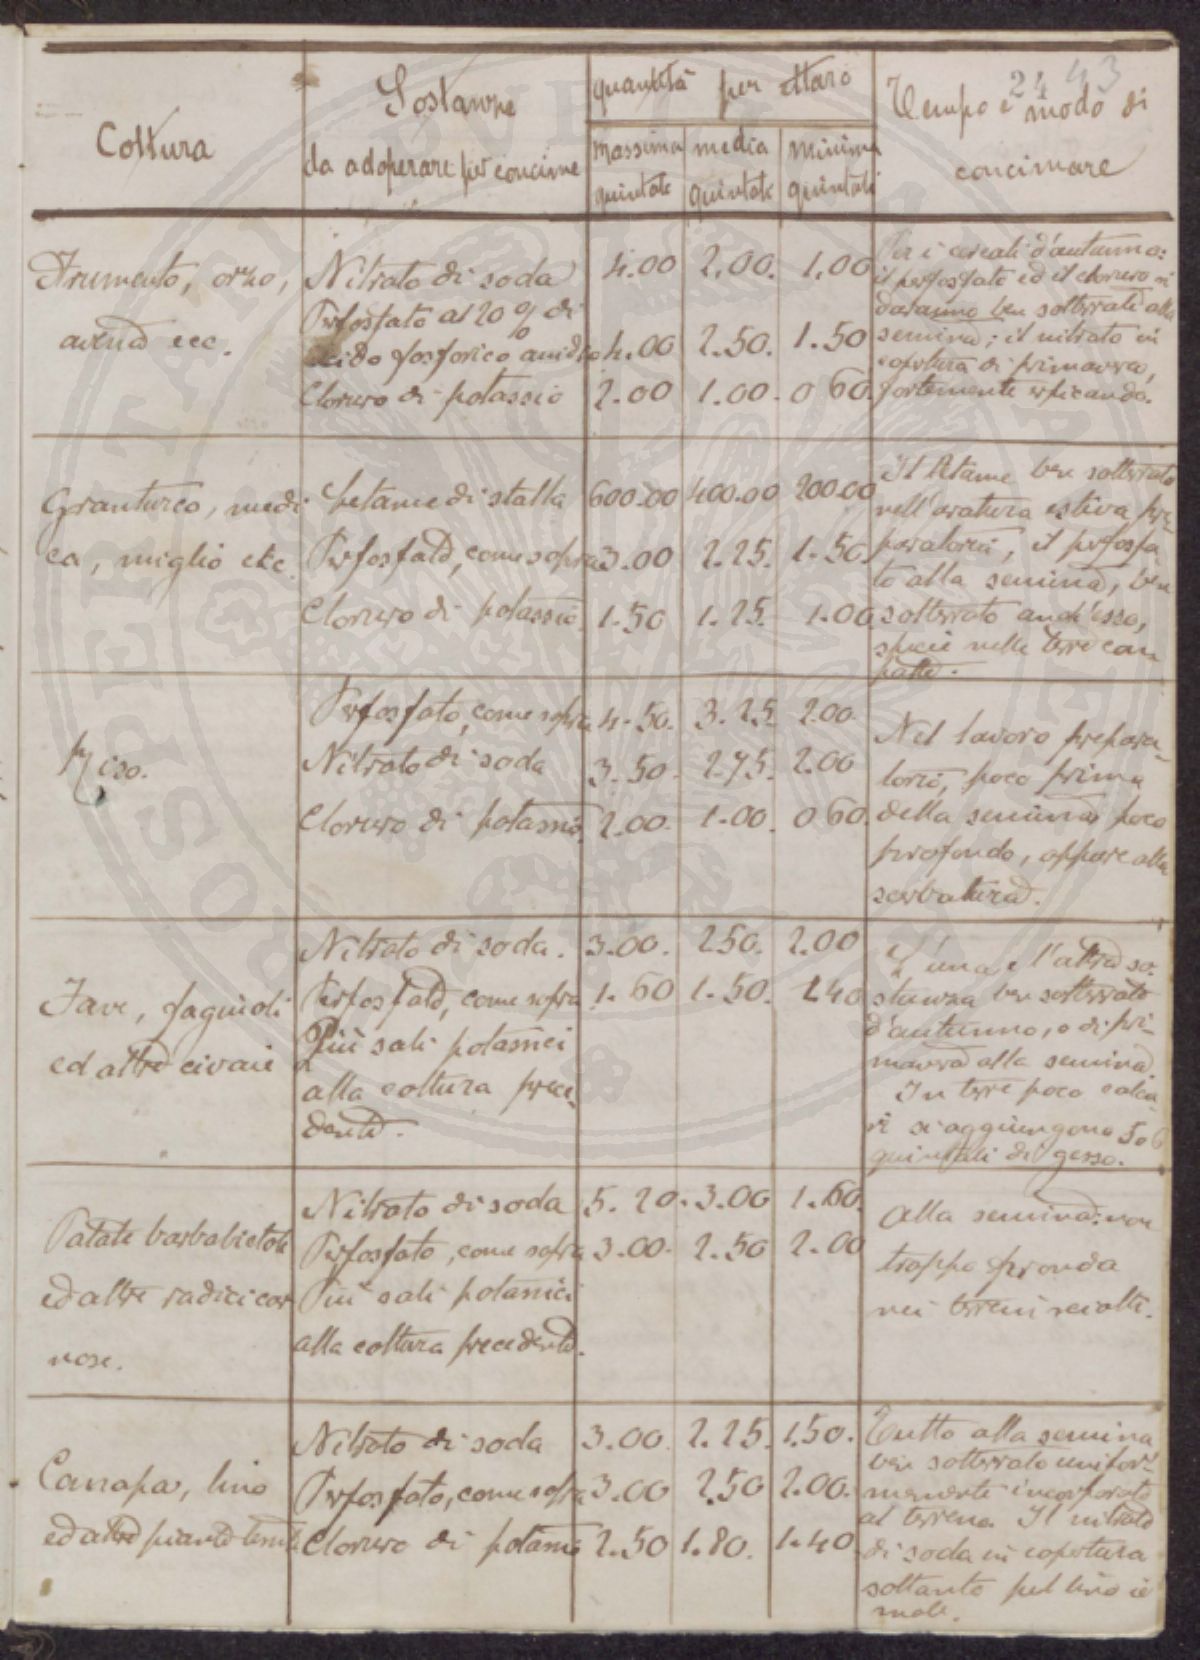 24 43
Coltura
Sostanze
da adoperare per concime
quantità per ettaro
Massima quintali
media quintali
Minima quintali
Tempo e modo di
concimare
Frumento, orzo,
avena ecc.
Nitrato di soda 4.00 2.00. 1.00
Perfosfato al 20 % di
acido fosforico anidro 4.00 2.50. 1.50
Cloruro di potassio 2.00 1.00. 0 60.
Per i cereali d'autunno:
il perfosfato ed il cloruro si
daranno ben sotterrati alla
semina; il nitrato in
copertura di primavera,
fortemente erpicando.
Granturco, medi
ca, miglio etc.
Letame di stalla 600.00 400.00 200.00
Perfosfato, come sopra 3.00 2.25. 1.50.
Cloruro di potassio. 1.50 1.25. 1.00
Il letame ben sotterrato
nell'aratura estiva pre-
paratoria, il perfosfa-
to alla semina, ben
sotterrato anch'esso,
specie nelle terre com
patte.
Riso.
Perfosfato, come sopra 4.50. 3.25 2.00.
Nitrato di soda 3.50. 2.75. 2.00
Cloruro di potassio. 2.00. 1.00. 0 60.
Nel lavoro prepara-
torio, poco prima
della semina poco
profondo, oppure alla
sarchiatura.
Fave, fagiuoli
ed altre civaie
Nitrato di soda. 3.00. 2.50. 2.00
Perfosfato, come sopra 1.60 1.50. 1.40
Più sali potassici
alla coltura prece-
dente.
L'una e l'altra so-
stanza ben sotterrato
d'autunno, o di pri-
mavera alla semina.
In terre poco calca-
ri si aggiungono 5 o 6
quintali di gesso.
Patate barbabietole
ed altre radici car
nose.
Nitrato di soda 5.20. 3.00 1.60.
Perfosfato, come sopra 3.00. 2.50 2.00
Più sali potassici
alla coltura precedente.
Alla semina: non
troppo fronda
nei terreni sciolti.
Canapa, lino
ed altre piante tessili
Nitrato di soda 3.00. 2.25. 1.50.
Perfosfato, come sopra 3.00 2.50 2.00.
Cloruro di potassio 2.50 1.80. 1.40.
Tutto alla semina
ben sotterrato unifor-
memente incorporato
al terreno. Il nitrato
di soda in copertura
soltanto pel lino in